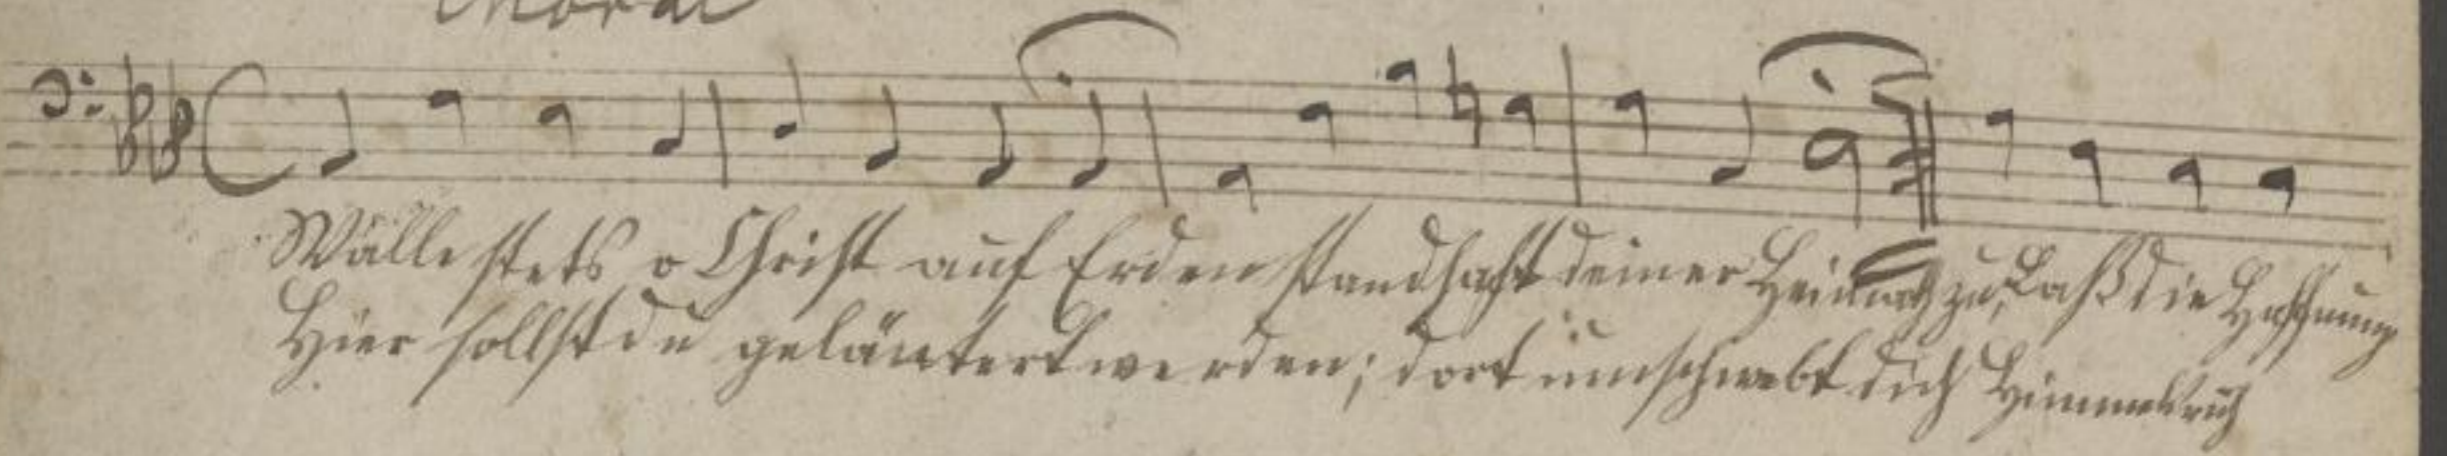 Choral
Walle stets o Christ auf Erden standhaft deiner Heimath zu, Laß die Hoffnung
Hier sollst du geläutert werden; dort umschwebt dich Himmelsruh